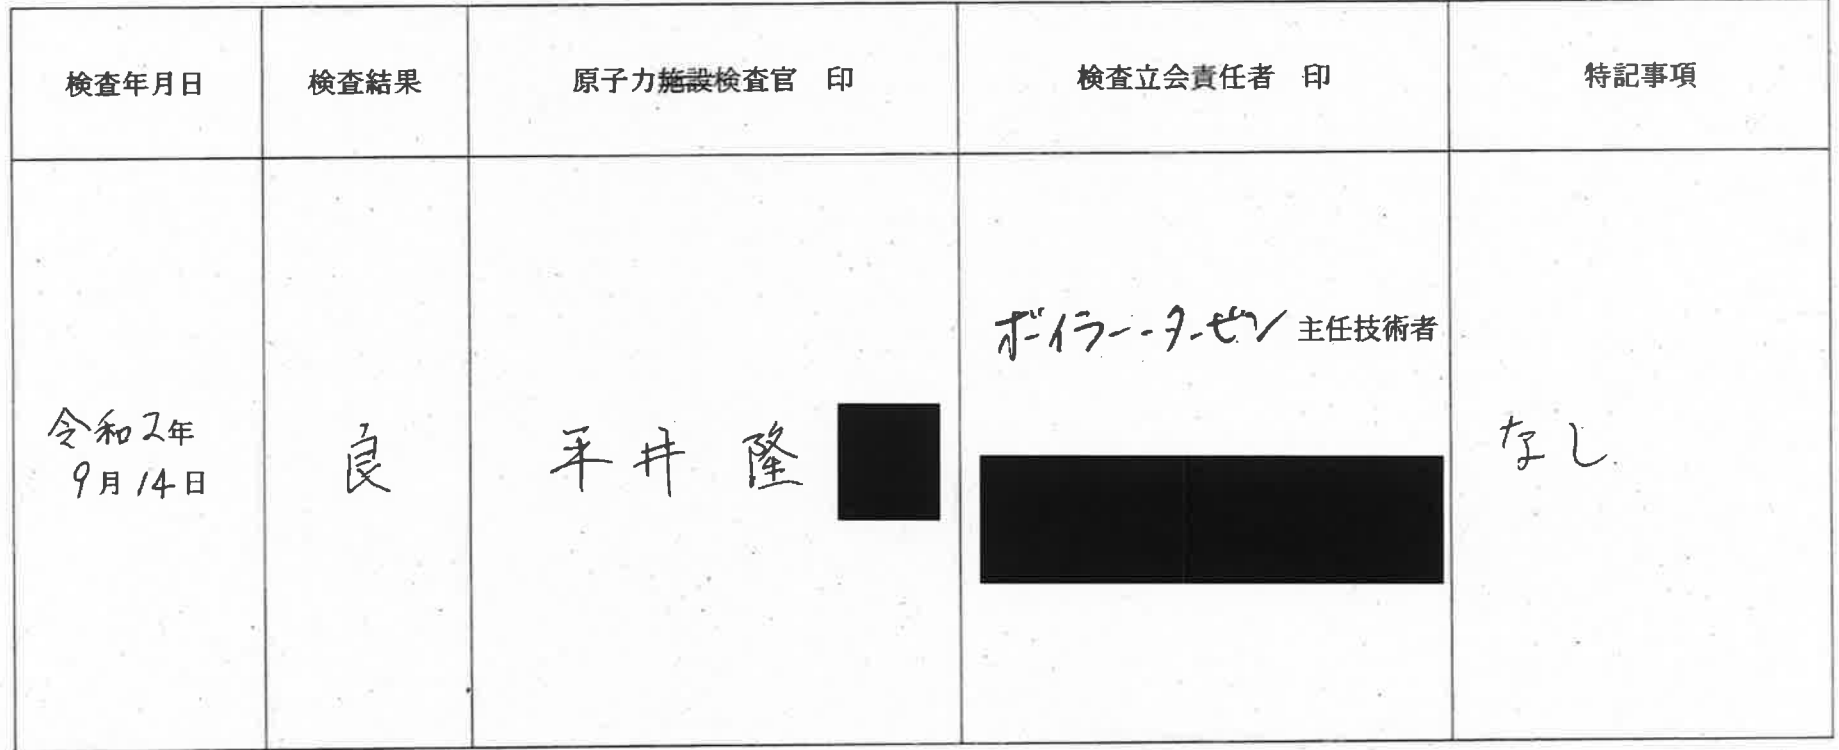 検査年月日
検査結果
原子力施設検査官 印
検査立会責任者 印
特記事項
令和2年
9月14日
良
平井 隆
ボイラー・タービン主任技術者
なし